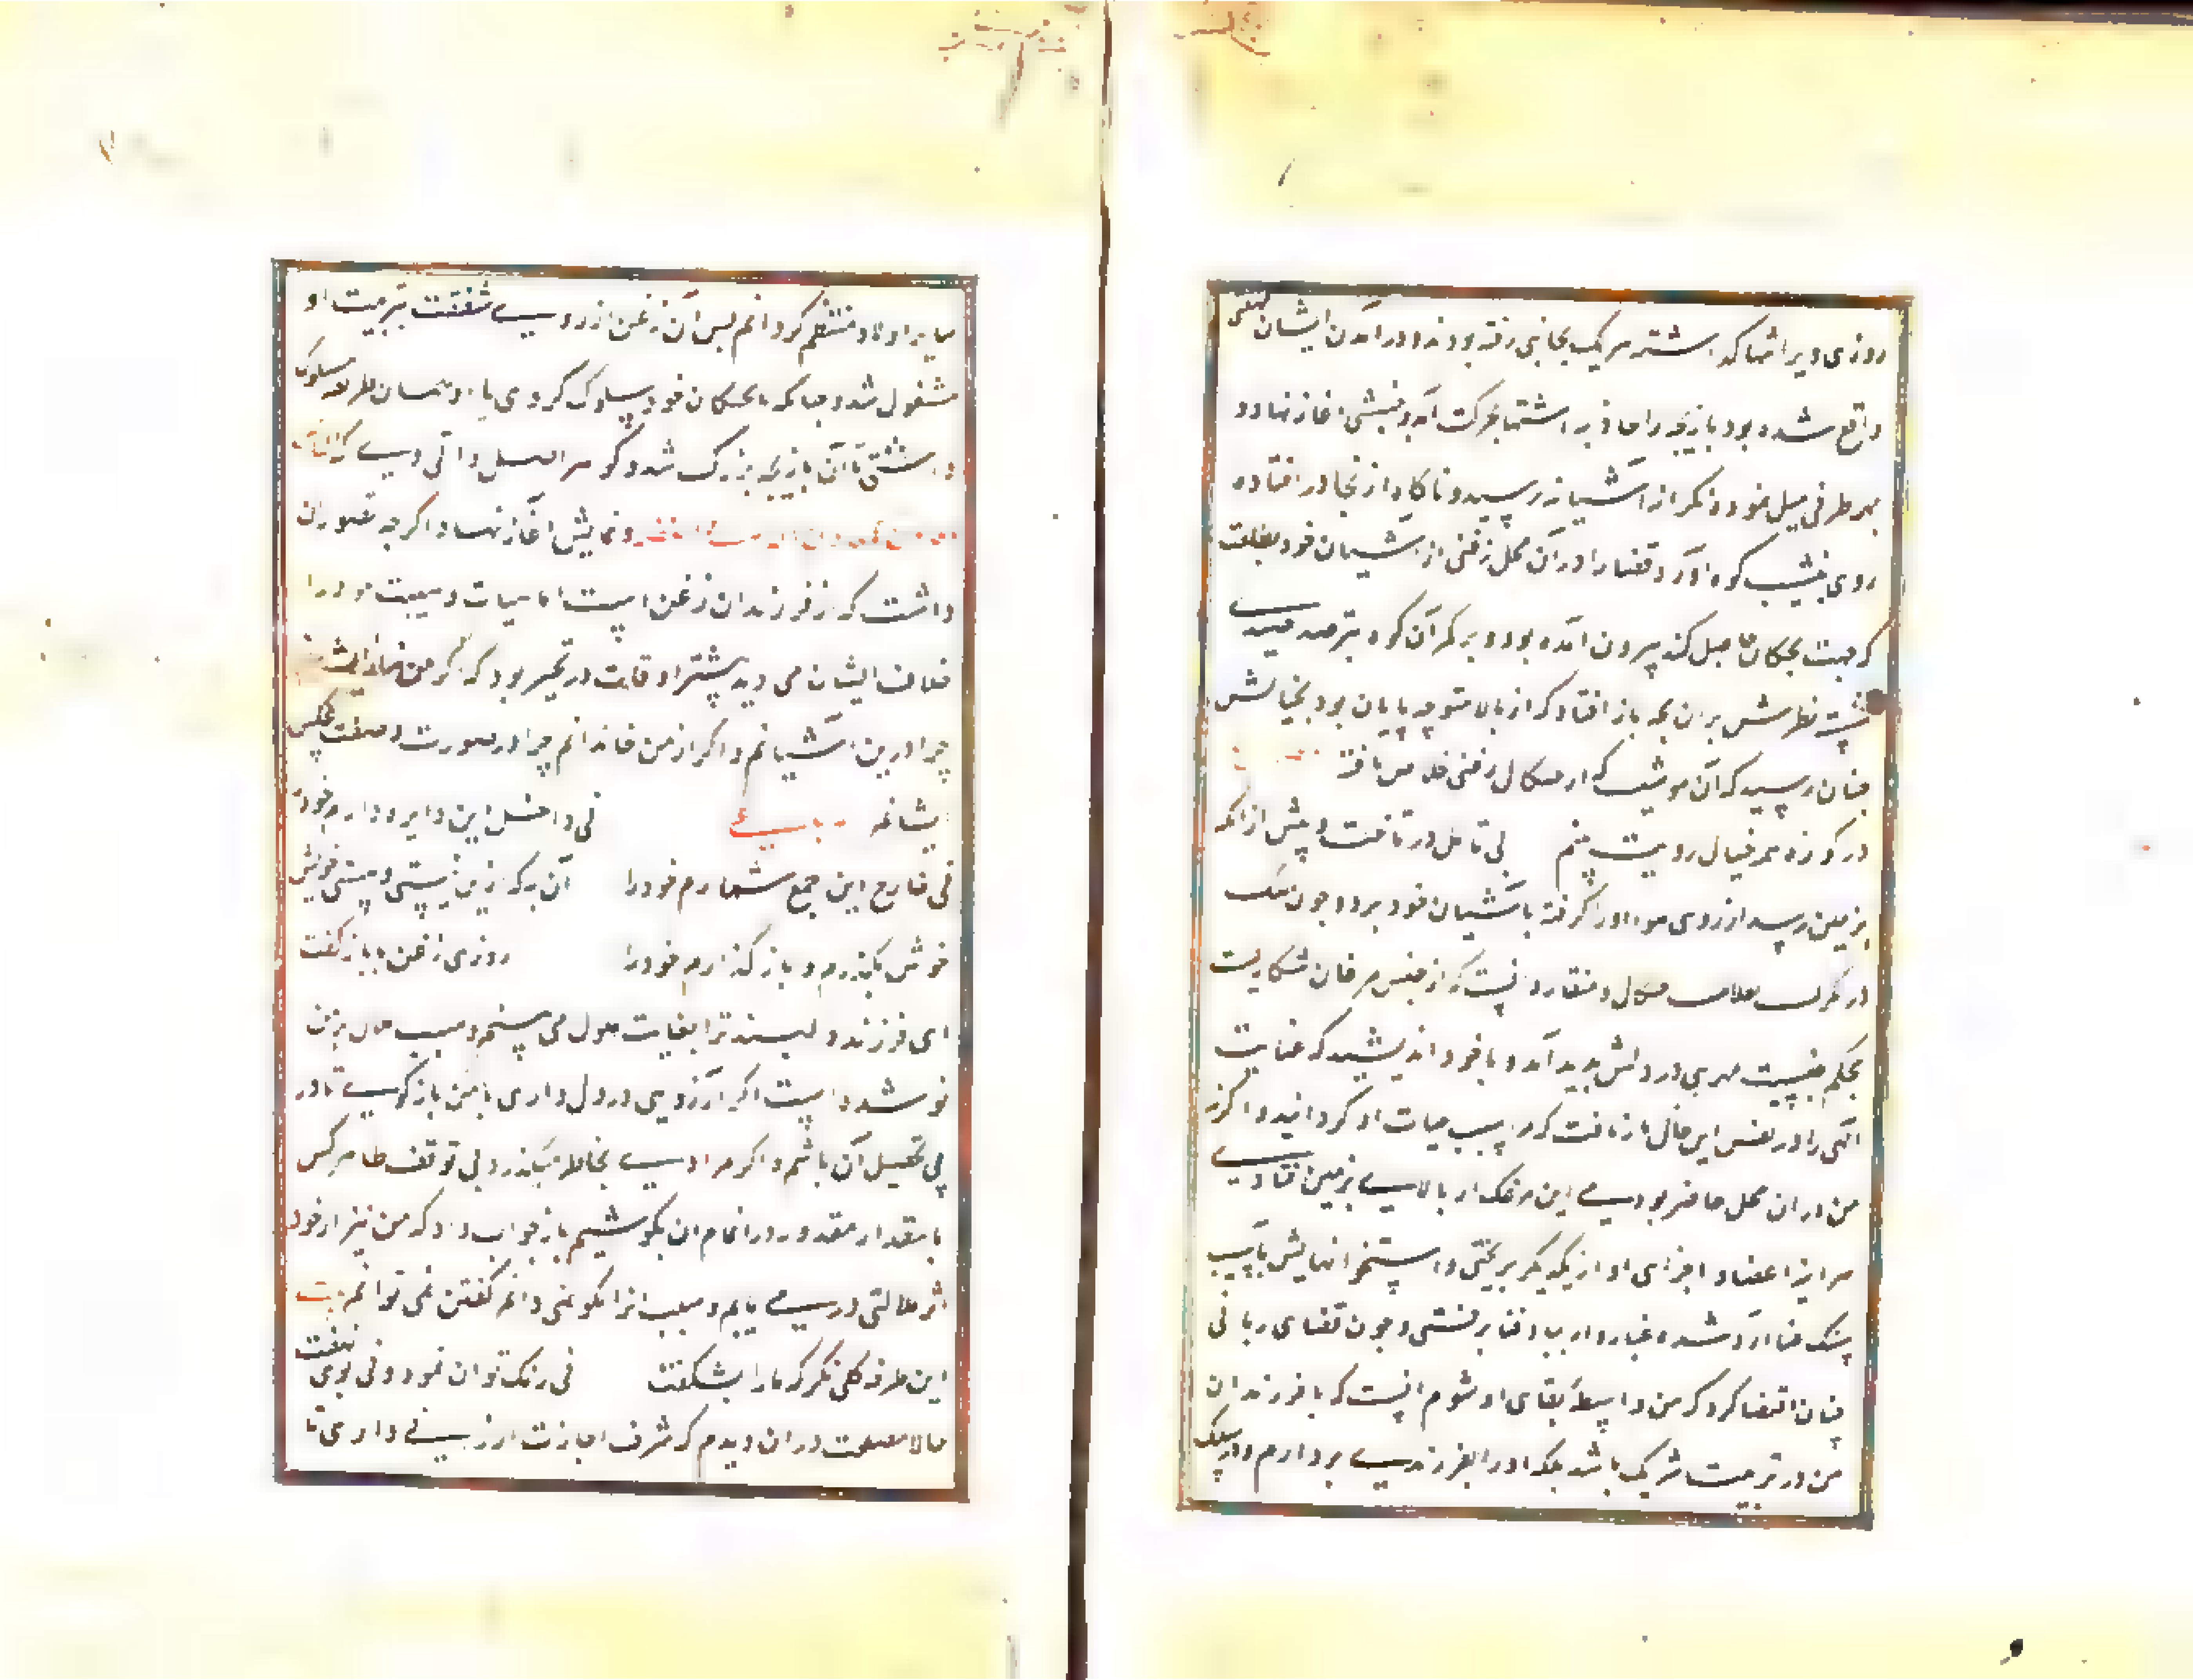 روزی ویرا شما که اشته هر یک بجانبی رفته بودند و در آمدن ایشان
واقع شده بود باز بچه را جاذبه اشتها بحرکت آمد و جنبشی آغاز نهاد و
بهر طرفی میل نمود و نگر از آشیانه رسید و ناگاه از آنجا در افتاده
روی بنشیب کوه آورد قضا را در آن محل زغنی از آشیان خود بطلب
که جهت بچگان حاصل کند بیرون آمده بود و بر کمر آن کوه مترصد صید
نشسته نظرش بران بچه باز افتاد که از بالا متوجه پایان بود بخیالش
چنان رسید که آن موشیست که از چنگال زغنی خلاص یافته
در کوزه هر خیال رویت بینم بی تامل در تاخت و پیش از آنکه
بزمین رسد از روی هوا او را گرفته بآشیان خود برد و چون نیک
در نگریست بعلامت چنگال و منقار دانست که از جنس مرغان شکاریست
بحکم جنسیت مهری در دلش پدید آمد و با خود اندیشید که عنایت
الهی را در نفس این حالی توان یافت که مرا سبب حیات او گردانید و اگر نه
من دران محل حاضر بودمی این مرغک از بالا بر زمین افتادی
هر آینه اعضا و اجزای او از یکدیگر بریختی و استخوانهایش بآسیب
سنگ فنا آرد شده غبار وار بباد فنا بر رفتی و چون قضای ربانی
چنان اقتضا کرد که من واسطه بقای او شوم انسب آنست که با فرزندان
من در تربیت شریک باشد بلکه او را بفرزندی بردارم و در سلک
سایر اولاد منتظم گردانم پس آن زغن از روی شفقت بتربیت او
مشغول شد و چنانکه با بچگان خود سلوک کردی با او همان طریقه مسلوک
داشتی تا آن باز بچه بزرگ شد و گوهر اصیل ذاتی وی که الناس
معادن کمعادن الذهب و الفضه روی نمایش آغاز نهاد و اگرچه تصور آن
داشت که از فرزندان زغن است اما هیات و هیبت خود را
خلاف ایشان می دید بیشتر اوقات در تحیر بود که اگر من نه از ایشانم
چرا درین آشیانم و اگر ازین خاندانم چرا در صورت و صفت بعکس
ایشانم رباعی نی داخل این دایره دارم خود را
نی خارج این جمع شمارم خود را آن به که زین نیستی و هستی خویش
خوش بگذرم و باز گذارم خود را روزی زغن با باز گفت
ای فرزند دلبند ترا بغایت ملول می بینم و سبب ملال بر من
پوشیده است اگر آرزویی در دل داری با من باز گوی تا در
پی تحصیل آن باشم و اگر مرادی بخاطر میگذرد بی توقف ظاهر کن
تا بمقدار مقدور در اتمام آن بکوشیم باز جواب داد که من نیز از خود
اثر ملالتی در می یابم و سبب آنرا نیکو نمی دانم گفتن نمی توانم بیت
این طرفه گلی نگر که ما را بشکفت نی رنگ توان نمود و نی بوی نهفت
حالا مصلحت دران دیدم که شرف اجازت ارزانی داری تا